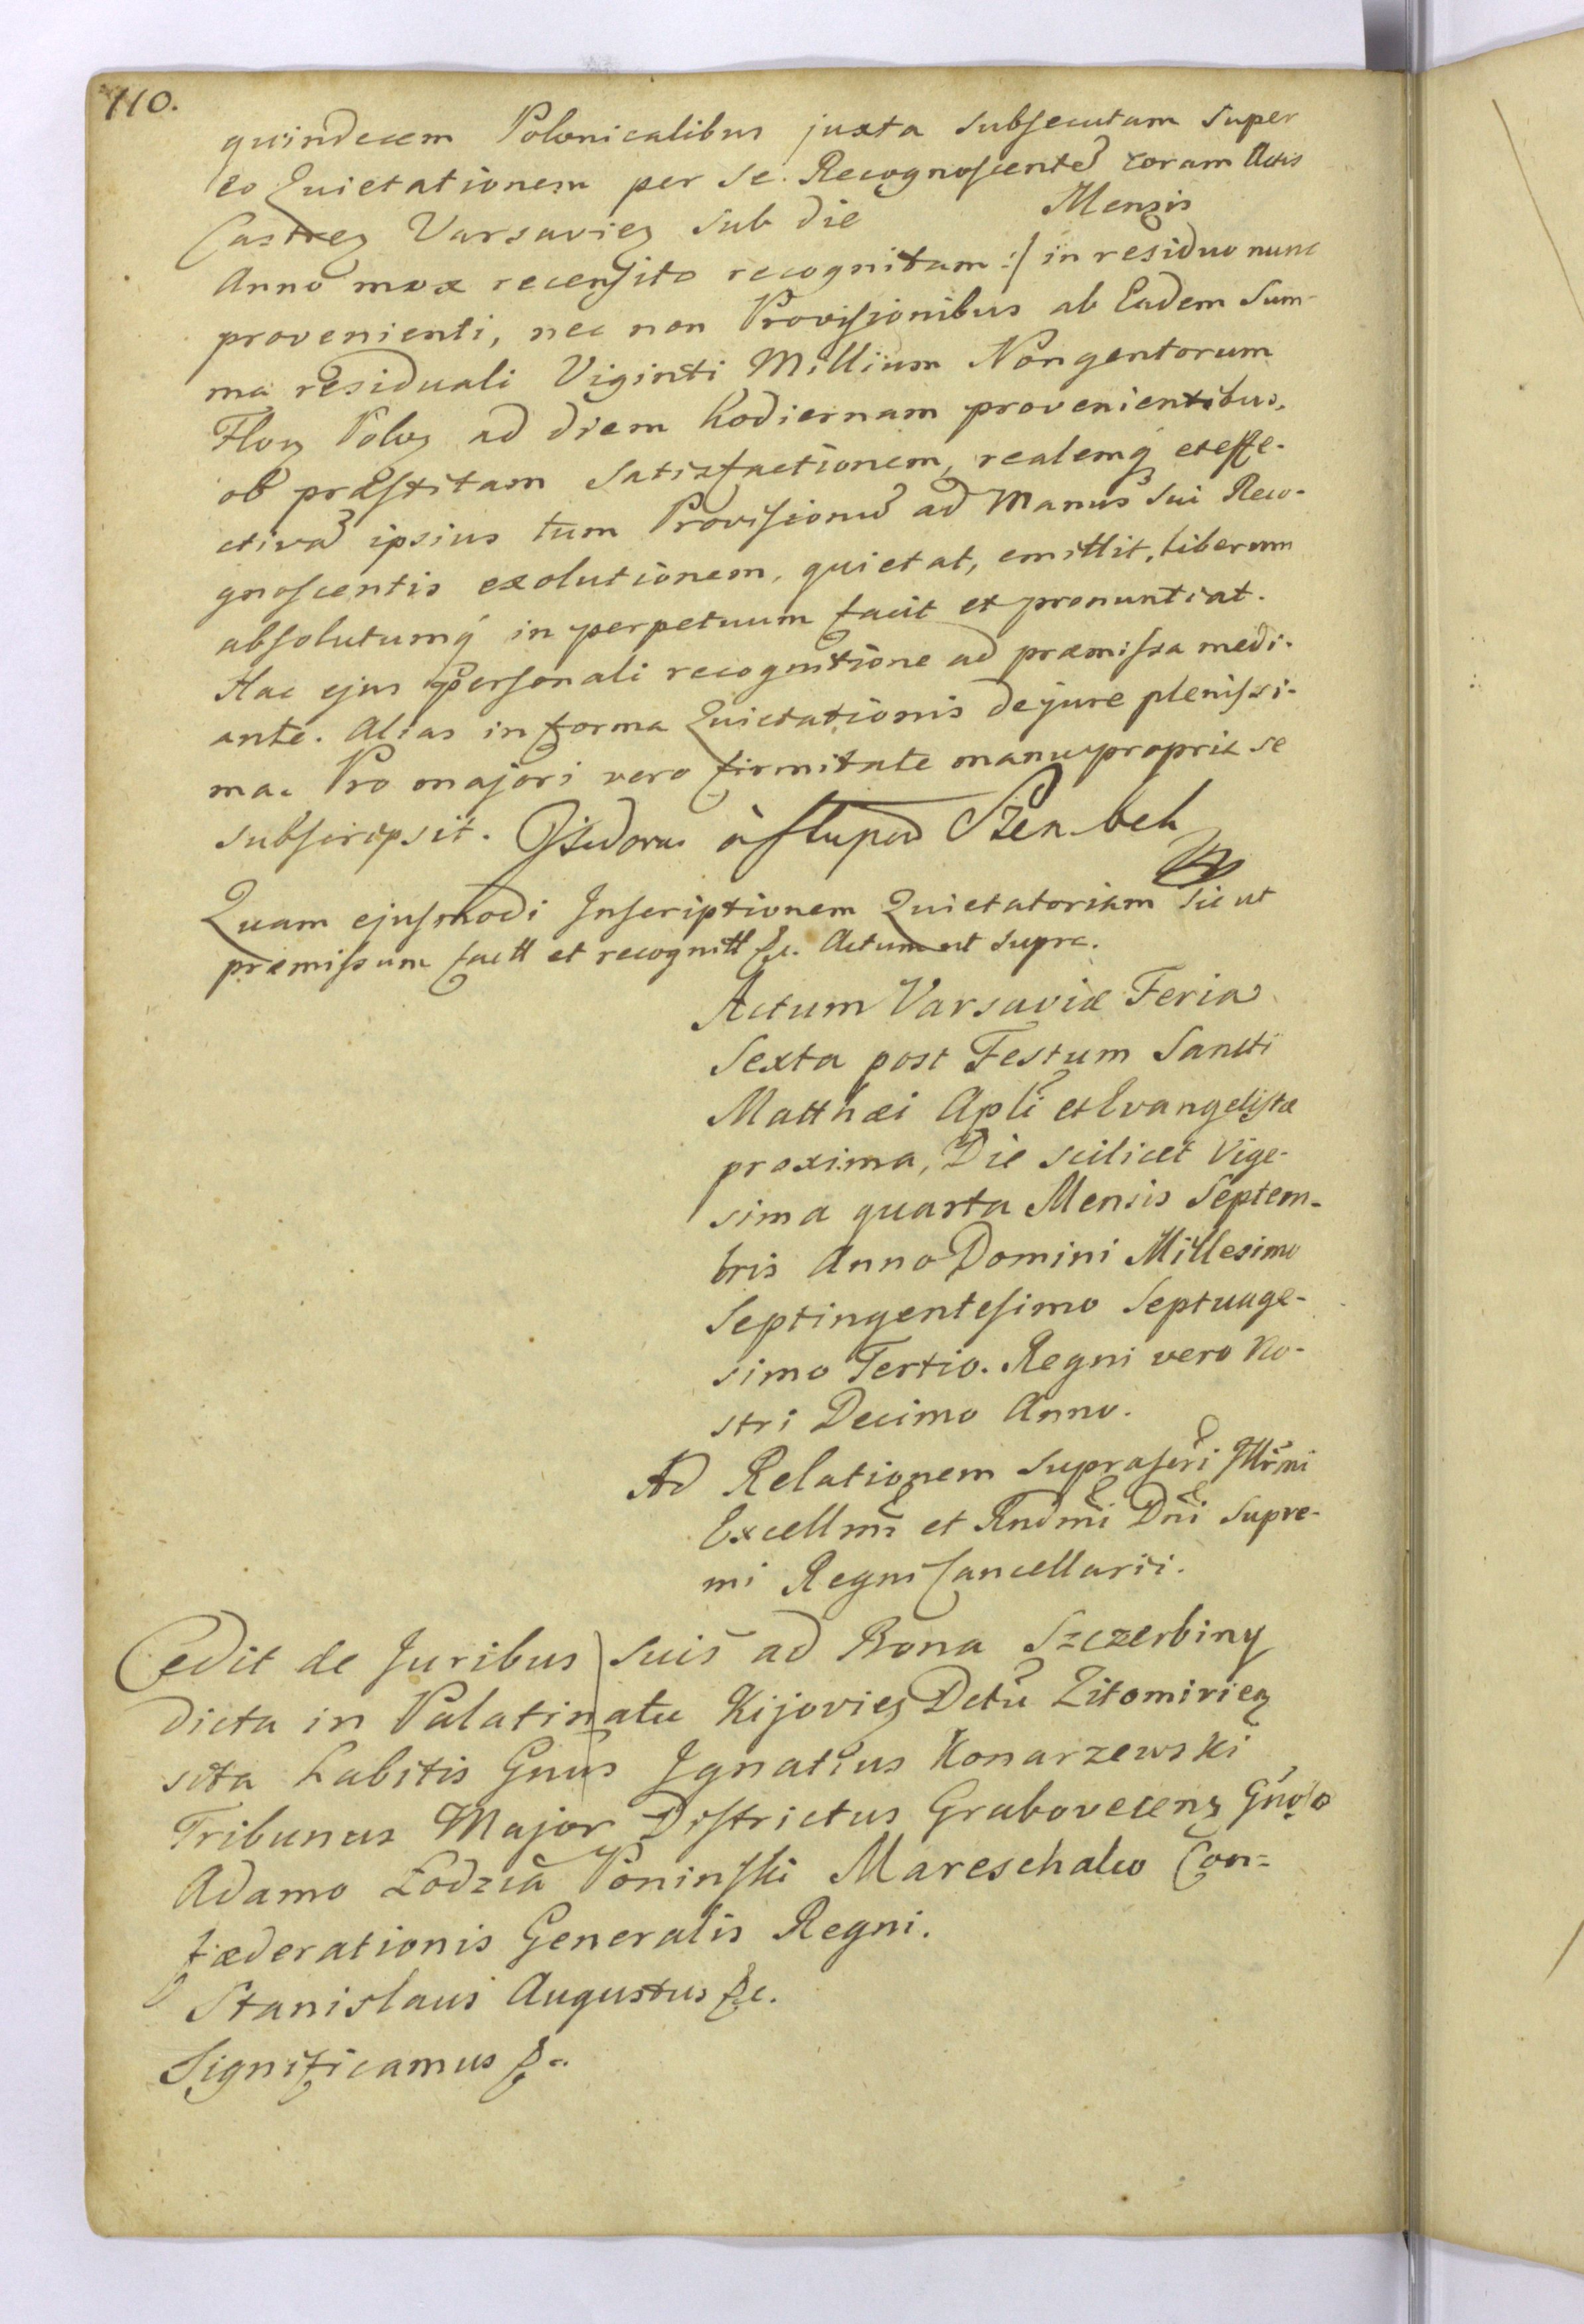 110.
quindecem Polonicalibus juxta subsecutam super
eo Quietationem per se Recognoscente coram Actis
Castren Varsavien sub die Mensis
Anno mox recensito recognitam :/ in residuo nunc
provenienti, nec non Provisionibus ab Eadem Sum-
ma residuali Viginti Millium Nongentorum
Flon Polon ad diem hodiernam provenientibus,
ob præstitam Satisfactionem, realemq́ et effe-
ctivã ipsius tum Provisionũ ad Manus sui Reco-
gnoscentis exolutionem, quietat, emittit, liberum
absolutumq́ in perpetuum facit et pronuntiat.
Hac ejus personali recognitione ad præmissa medi-
ante. Alias in forma Quietationis de jure plenissi-
ma. Pro majori vero firmitate manu propria se
subscripsit. à Słupow Szembek
Quam ejusmodi Inscriptionem Quietatoriam sic ut
præmissum factt et recognitt &c. Actum ut supra.
Actum Varsaviæ Feria
Sexta post Festum Sancti
Matthæi Apli et Evangelistæ
proxima, Die scilicet Vige-
sima quarta Mensis Septem-
bris Anno Domini Millesimo
Septingentesimo Septuage-
simo Tertio. Regni vero No-
stri Decimo Anno.
Ad Relationem suprascri Illrmi
Excellmi et Rndmi Dni Supre-
mi Regni Cancellarii.
Cedit de Juribus suis ad Bona Szczerbiny
dicta in Palatinatu Kijovien Dctu Zitomirien
sita habitis Gnus Ignatius Konarzewski
Tribunus Major Districtus Grabovecens Gnoso
Adamo Łodzia Poninski Mareschalco Con=
fæderationis Generalis Regni.
Stanislaus Augustus &c.
Significamus &c.